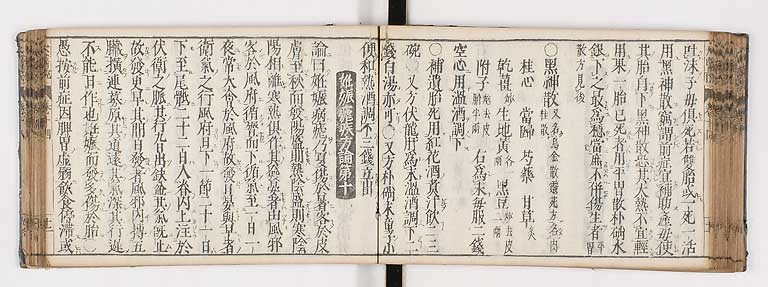 吐沫子母俱死若雙胎或一死一活
用黑神散竊謂前症宜補助產母使
其胎自下黑神散恐其大熱不宜輕
用果一胎已死者用平胃散朴硝水
銀下之最為穩當庶不併傷生者平胃
散方見後
○黑神散 又名烏金散靈苑方名肉桂散
桂心 當歸 芍藥 甘草炙
乾薑炮 生地黃各一兩 黑豆炒去皮二兩
附子炮去皮臍半兩 右為末每服二錢
空心用溫酒調下
○補遺胎死用紅花酒煮汁飲二三
碗○又方伏龍肝為末溫酒調下二
錢白湯亦可○又方朴硝末童小
便和熱酒調下三錢立出
妊娠瘧疾方論第十
論曰妊娠病瘧乃夏傷於暑客於皮
膚至秋而發陽盛則熱陰盛則寒陰
陽相離寒熱俱作其發晏者由風邪
客於風府循膂而下衛氣至一日一
夜常大會於風府故發日晏與早者
衛氣之行風府日下一節二十一日
下至尾骶二十二日入脊內上注於
伏衝之脉其行九日出缺盆其氣既止
故發更早其間日發者風邪內搏五
臟橫連募原其道遠其氣深其行遲
不能日作也妊娠而發多傷於胎○
愚按前症因脾胃虛弱飲食停滯或